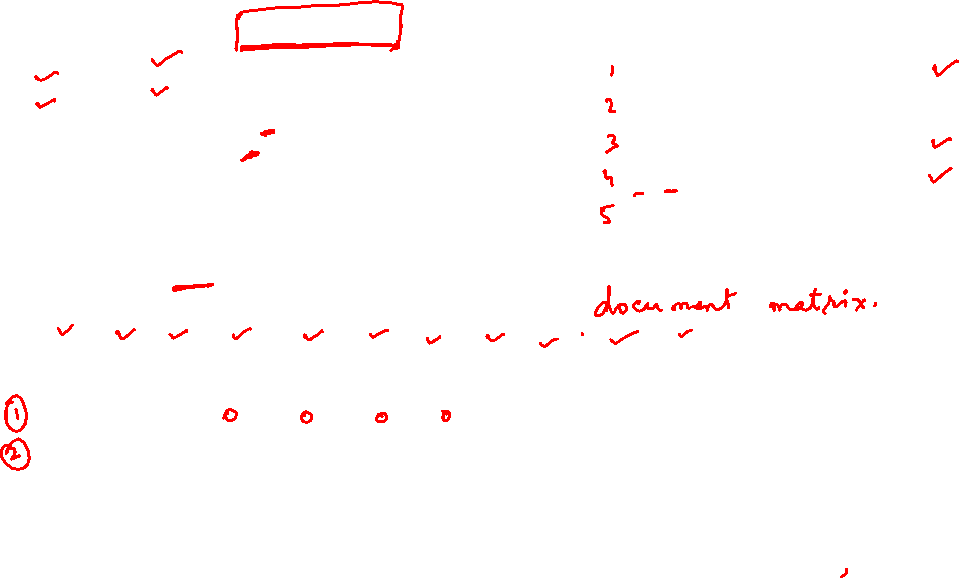 1
2
3
4
5
document matrix.
1
0 0 0 0
2